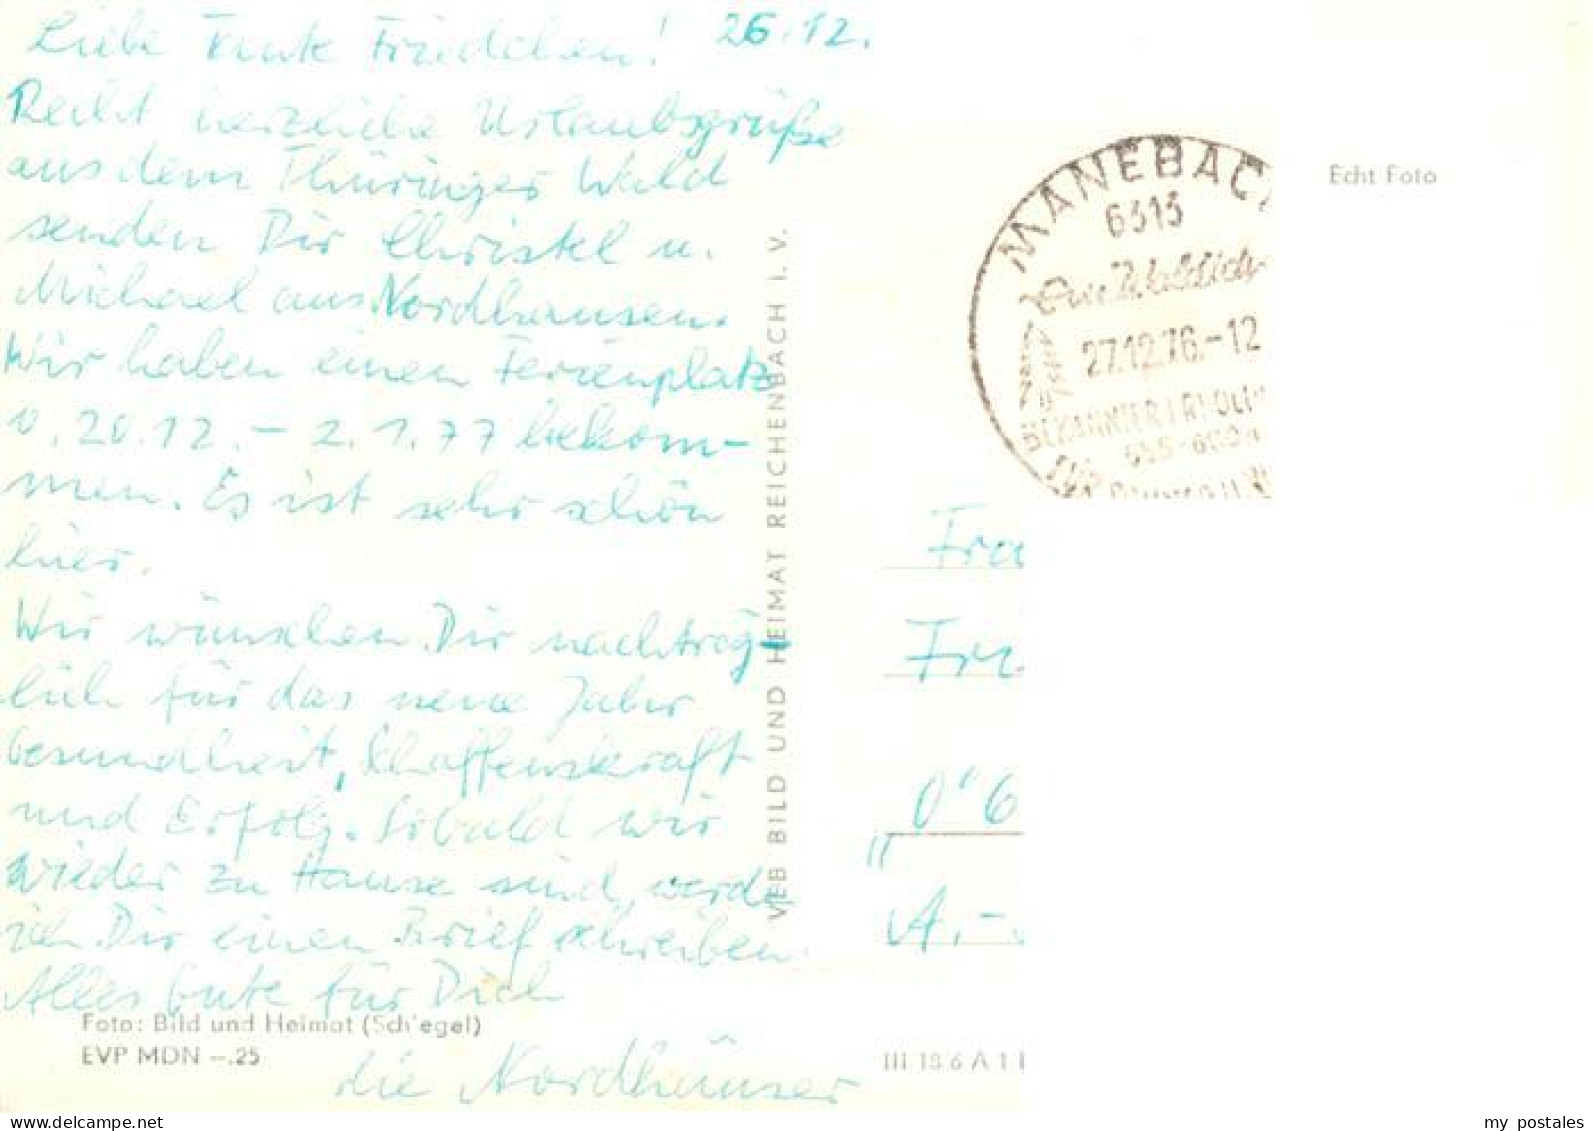 26.12.
Liebe Tante Friedchen!
Recht herzliche Urlaubsgrüße
aus dem Thüringer Wald
senden Dir Christel u.
Michael aus Nordhausen.
Wir haben einen Ferienplatz
v. 20.12. – 2.1.77 bekom-
men. Es ist sehr schön
hier.
Wir wünschen Dir nachträg-
lich für das neue Jahr
Gesundheit, Schaffenskraft
und Erfolg. Sobald wir
wieder zu Hause sind, werde
ich Dir einen Brief schreiben.
Alles Gute für Dich
die Nordhäuser
Foto: Bild und Heimat (Schlegel)
EVP MDN –.25
VEB BILD UND HEIMAT REICHENBACH I. V.
MANEBACH
6313
27.12.76.-12
Echt Foto
Fra
Fri
A.-
III 18 6 A 1
my postales